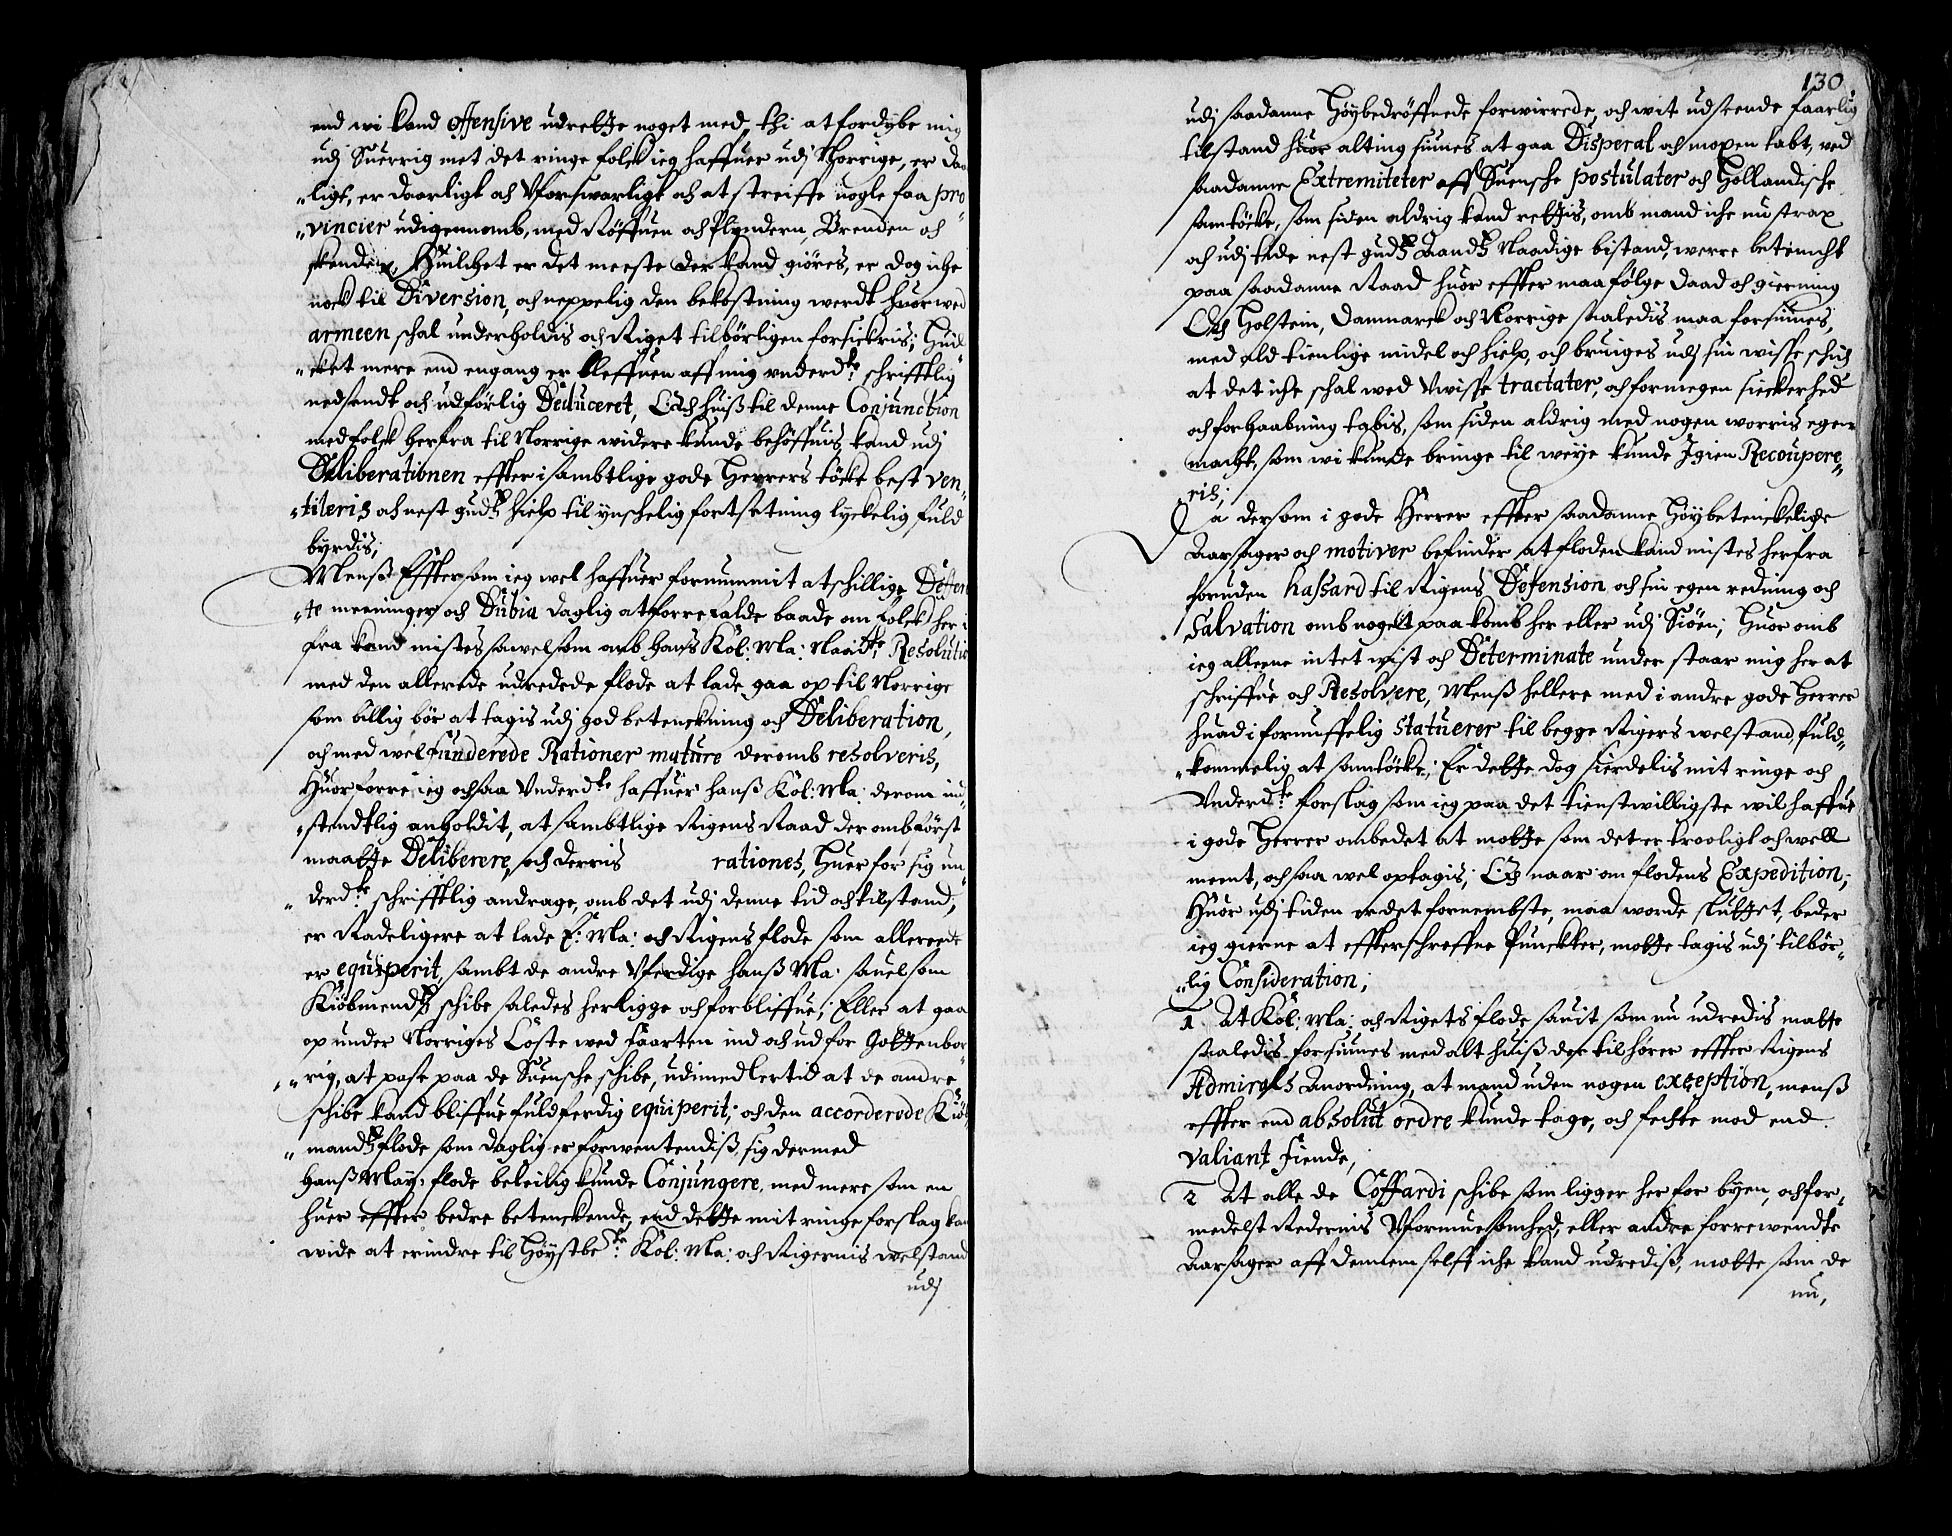 end wi kand offensive udrette noget med, thi at fordybe mig
udj Suerrig met det ringe folck ieg haffuer udj Norrige, er daar
„ligt, er daarligt och Uforswarligt och at streiffe nogle faa pro
„vincier udigennomb, med Röffuen och Plyndern, Brenden och
skenden, Huilchet er det meeste der kand giöres, er dog iche
nock til Diversion, och neppelig den bekostning werdt huor wed
armeen schal underholdis och Riget tilbörligen forsickris; Huil
„cket mere end engang er bleffuen aff mig underdte: schrifftlig
nedsendt och udförlig Deduceret, Och huiß til denne Conjunction
med folck herfra til Norrige widere kunde behöffuis, kand udj
Deliberationen effter i sambtlige gode Herrers töcke best ven„
„tileris och nest gudß hielp til ynschelig fortsetning lyckelig fuld
byrdis;
Menß Efftersom ieg wel haffuer fornummit atschillige Differen
„te meeninger och Dubia daglig at forrefalde baade om folck her i
fra kand mistes sawelsom omb hans Köl: Ma: Naadte: Resolutio
med den allerede udredede flode at lade gaa op til Norrige
som billig bör at tagis udj god betenckning och Deliberation,
och med wel funderede Rationer mature deromb resolveris,
Huorforre ieg ochsaa Underdte haffuer hanß Köl: Ma: derom ind„
„stendtlig anholdit, at sambtlige Rigens Raad der omb först
maatte Deliberere, och derris rationes, Huer for sig un„
„derdte: schrifftlig andrage, omb det udj denne tid och tilstand,
er Radeligere at lade E: Ma: och Rigens flode som allereede
er equiperit, sambt de andre Uferdige hanß Ma: sauelsom
Kiöbmendß schibe saledes her ligge och forbliffue; Eller at gaa
op under Norriges Cöste wed faarten ind och ud for Gottenbor„
„rig, at pase paa de Suensche schibe, udimedlertid at de andre
schibe kand bliffue fuldferdig equiperit; och den accorderede Kiöb
„mandß flode som daglig er forwentendiß, sig dermed
hanß May: flode beleilig kunde Conjungere, med mere som en
huer effter bedre betenckende, end dette mit ringe forslag kand
wide at erindre til Höystbete: Köl: Ma: och Rigernis welstand
udj
130
udj saadanne Höybedröffuede forwirrede, och wit udseende faarlig
tilstand huor alting siunes at gaa Disperat och mopen tabt, wed
saadanne Extremiteter aff Suensche postulater och Hollandische
samtöcke, som siden aldrig kand rettis, omb mand iche nu strax
och udj tide nest gudß Aandß Naadige bistand, werre betencht
paa saadanne Raad huor effter maa fölge daad och gierning
Och Holstein, Danmarck och Norrige saaledis maa forsiunes,
med ald tienlige midel och hielp, och bruiges udj sin wisse schich
at det iche schal wed Uwisse tractater, och formegen sieckerhed
och forhaabning tabis, som siden aldrig med nogen worris egen
macht, som wi kunde bringe til weye kunde Igien Recoupere„
ris;
Da dersom i gode Herrer effter saadanne Höybetenckelige
Aarsager och motiver befinder at floden kand mistes herfra
foruden hassard til Rigens Defension och sin egen redning och
Salvation omb noget paa komb her eller udj Siöen; Huor omb
ieg alleene intet wist och Determinate under staar mig her at
schriffue och Resolvere, Menß hellere med i andre gode Herrer
huad i fornufftelig statuerer til begge Rigers welstand, fuld„
„kommelig at samtöcke; Er dette dog sierdelis mit ringe och
Underdte: forslag som ieg paa det tienstwilligste wil haffue
i gode Herrer ombedet at motte som det er trooligt och well
meent, ochsaa wel optagis; Och naar om flodens Expedition;
Huor udj tiden er det fornembste, maa worde sluttet, beder
ieg gierne at effterschreffne Punckter, motte tagis udj tilbör„
„lig Consideration;
1 At Köl: Ma: och Rigets flode sauit som nu udredis motte
saaledis forsiunes med alt huiß der tilhörer effter Rigens
Admirals Anordning, at mand uden nogen exception, menß
effter end absolut ordre kunde tage, och fechte mod end
valiant fiende,
2 At alle de Coffardi schibe som ligger her for byen, och for„
medelst Redernis Uformuesomhed, eller andre forrewendte
Aarsager aff dennem selff iche kand udrediß, motte som de
nu,